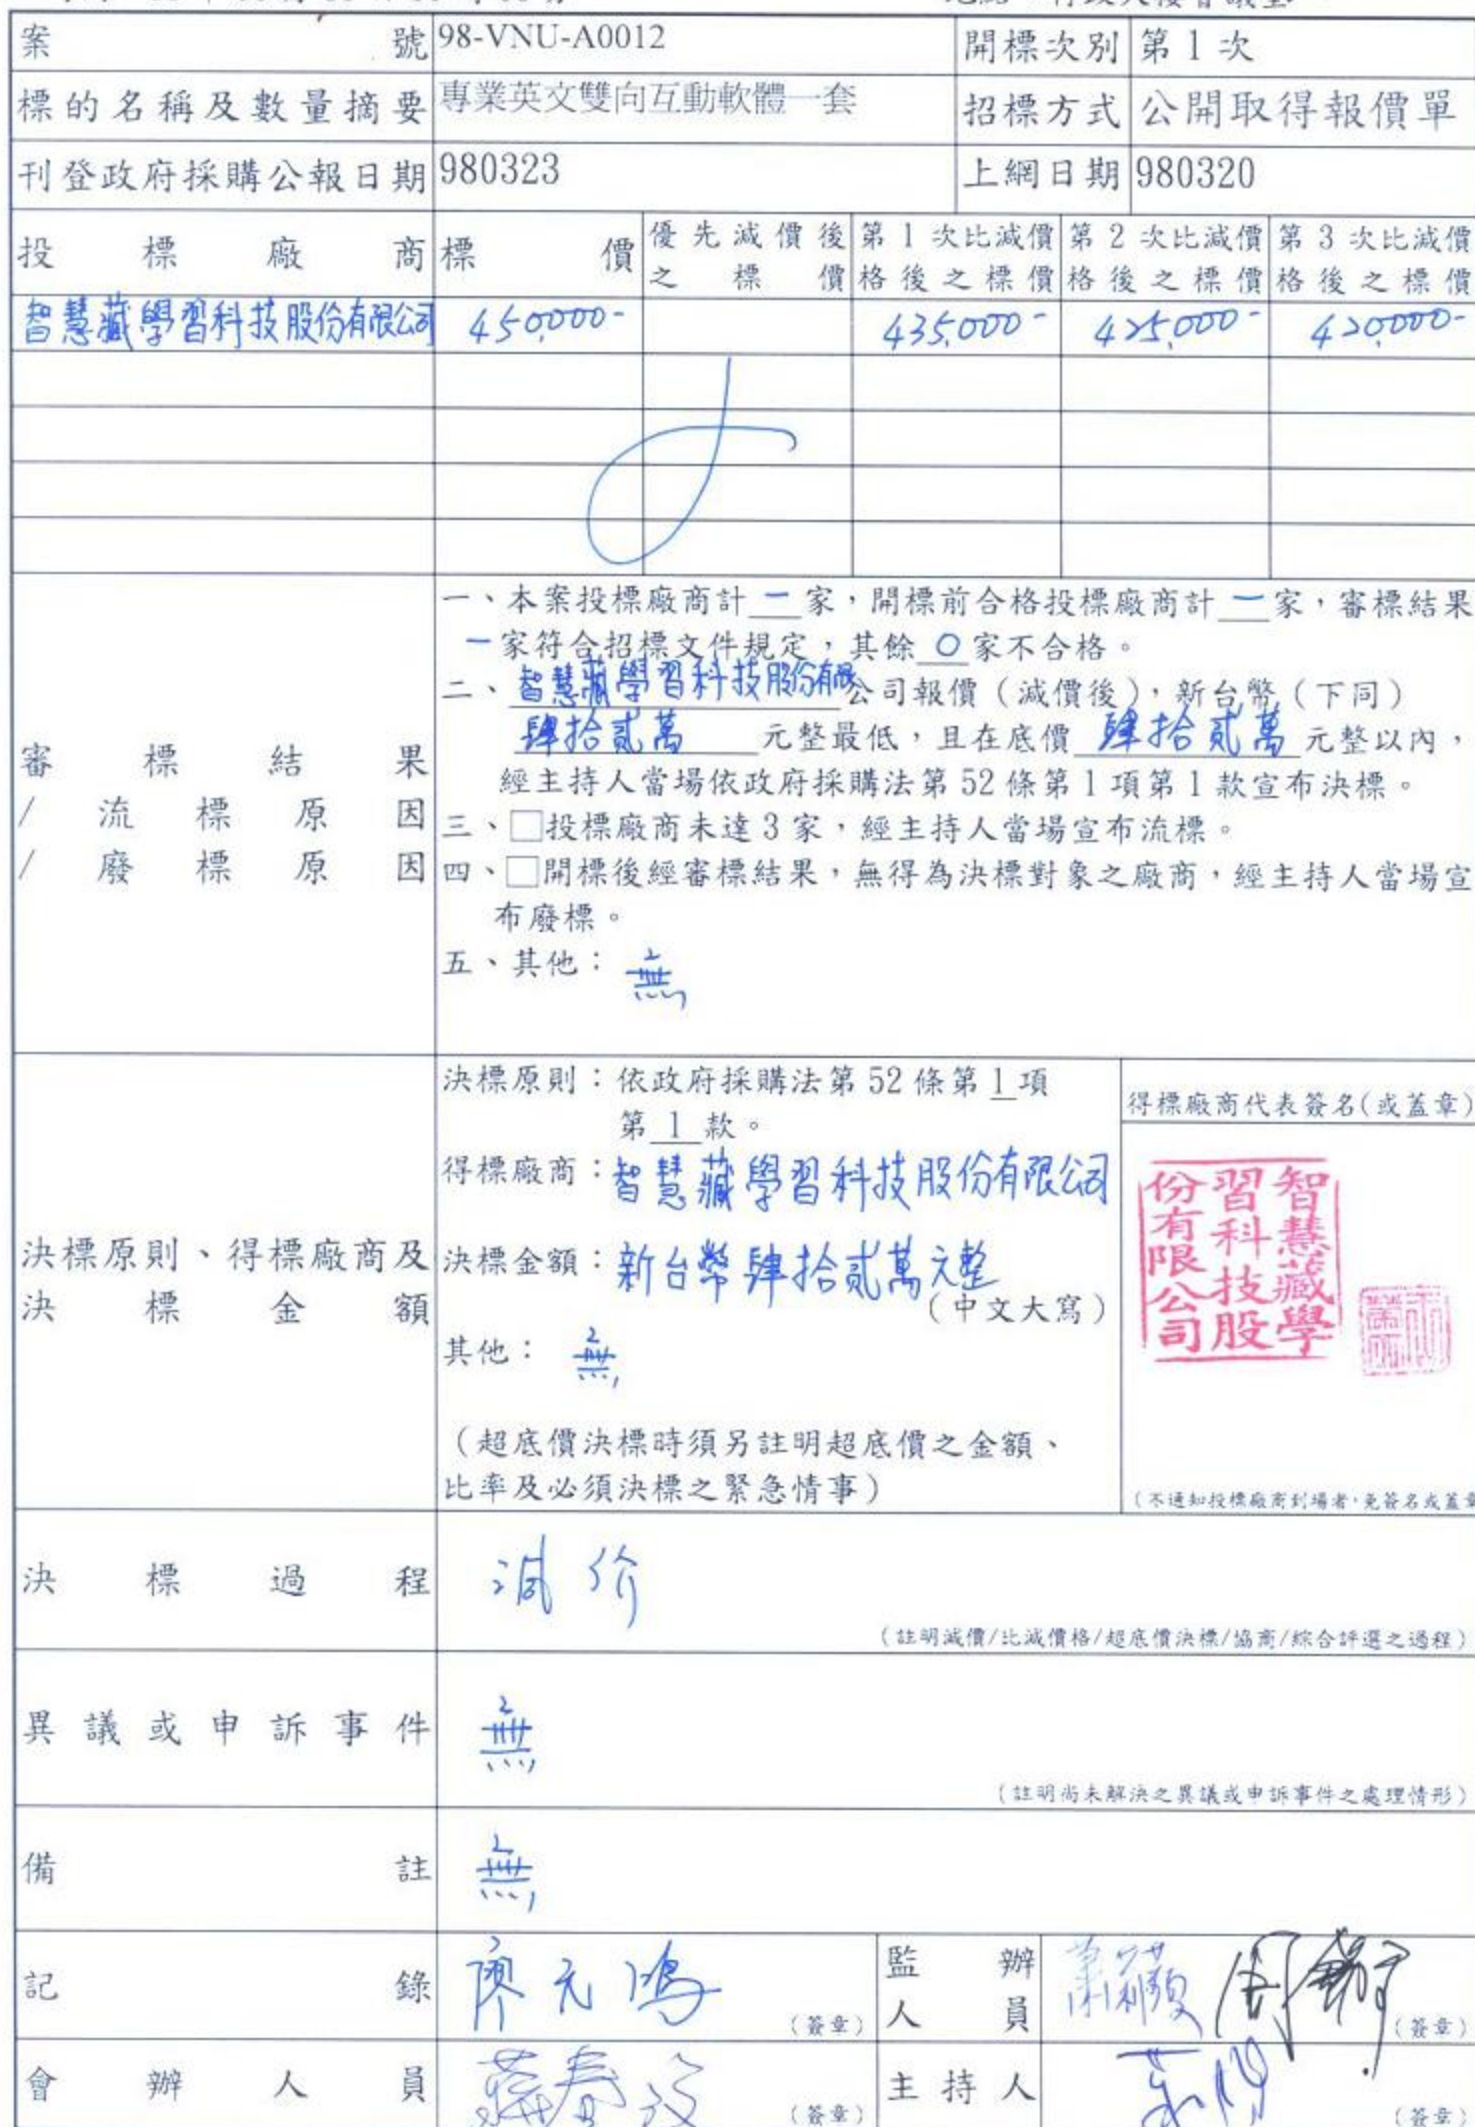 案號 98-VNU-A0012 開標次別 第 1 次
標的名稱及數量摘要 專業英文雙向互動軟體一套 招標方式 公開取得報價單
刊登政府採購公報日期 980323 上網日期 980320
投標廠商 標價 優先減價後之標價 第 1 次比減價格後之標價 第 2 次比減價格後之標價 第 3 次比減價格後之標價
智慧藏學習科技股份有限公司 450,000- 435,000- 425,000- 420,000-
審標結果
/流標原因
/廢標原因
一、本案投標廠商計一家,開標前合格投標廠商計一家,審標結果
一家符合招標文件規定,其餘 0 家不合格。
二、智慧藏學習科技股份有限公司報價(減價後),新台幣(下同)
肆拾貳萬 元整最低,且在底價 肆拾貳萬 元整以內,
經主持人當場依政府採購法第 52 條第 1 項第 1 款宣布決標。
三、□投標廠商未達 3 家,經主持人當場宣布流標。
四、□開標後經審標結果,無得為決標對象之廠商,經主持人當場宣
布廢標。
五、其他:無
決標原則、得標廠商及
決標金額
決標原則:依政府採購法第 52 條第 1 項
第 1 款。
得標廠商:智慧藏學習科技股份有限公司
決標金額:新台幣肆拾貳萬元整
(中文大寫)
其他:無
(超底價決標時須另註明超底價之金額、
比率及必須決標之緊急情事)
得標廠商代表簽名(或蓋章)
智慧藏學
習科技股
份有限公司
(不通知投標廠商到場者,免簽名或蓋章
決標過程 減价
(註明減價/比減價格/超底價決標/協商/綜合評選之過程)
異議或申訴事件 無
(註明尚未解決之異議或申訴事件之處理情形)
備註 無
記錄 廖元鴻 (簽章) 監辦人員 (簽章)
會辦人員 (簽章) 主持人 (簽章)